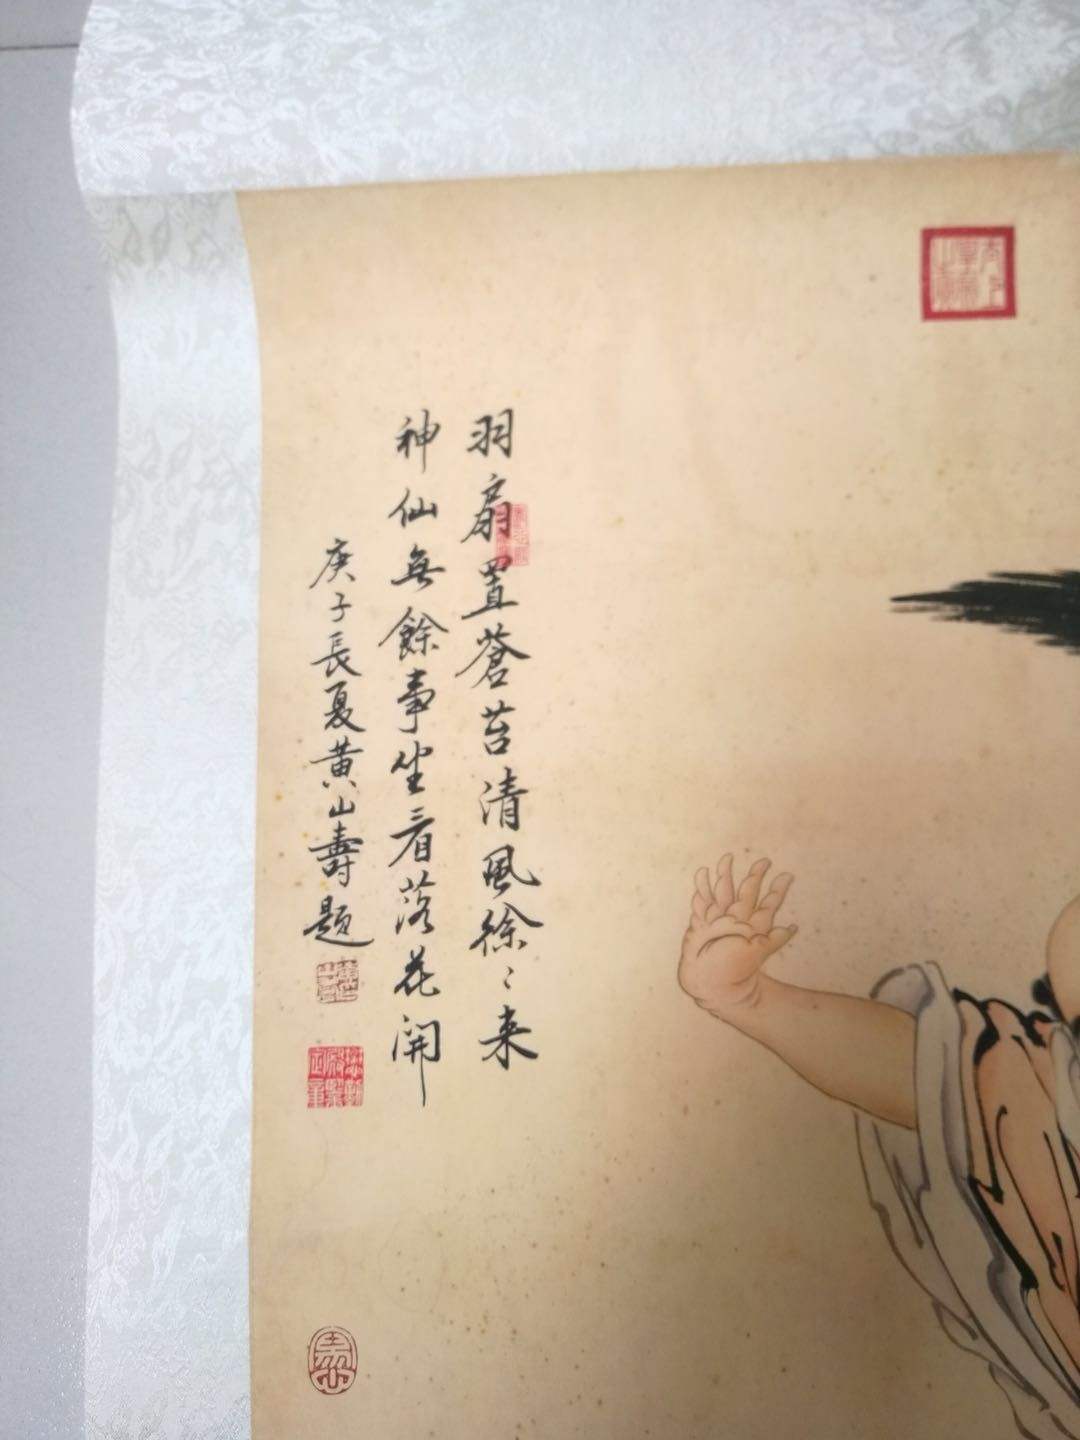 羽扇置蒼苔清風徐〻来
神仙無餘事坐看落花開
庚子長夏黄山壽題